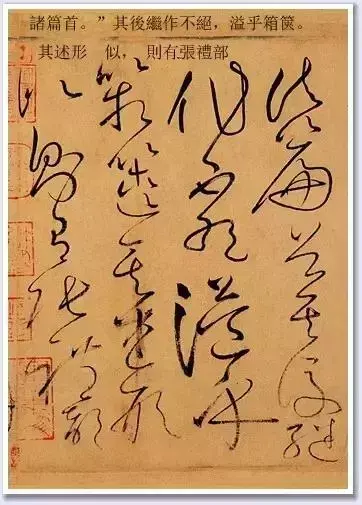 諸篇首。”其後繼作不絕，溢乎箱篋。
其述形 似， 則有張禮部
諸篇首其後繼
作不絕溢乎
箱篋其述形
似則有張禮部